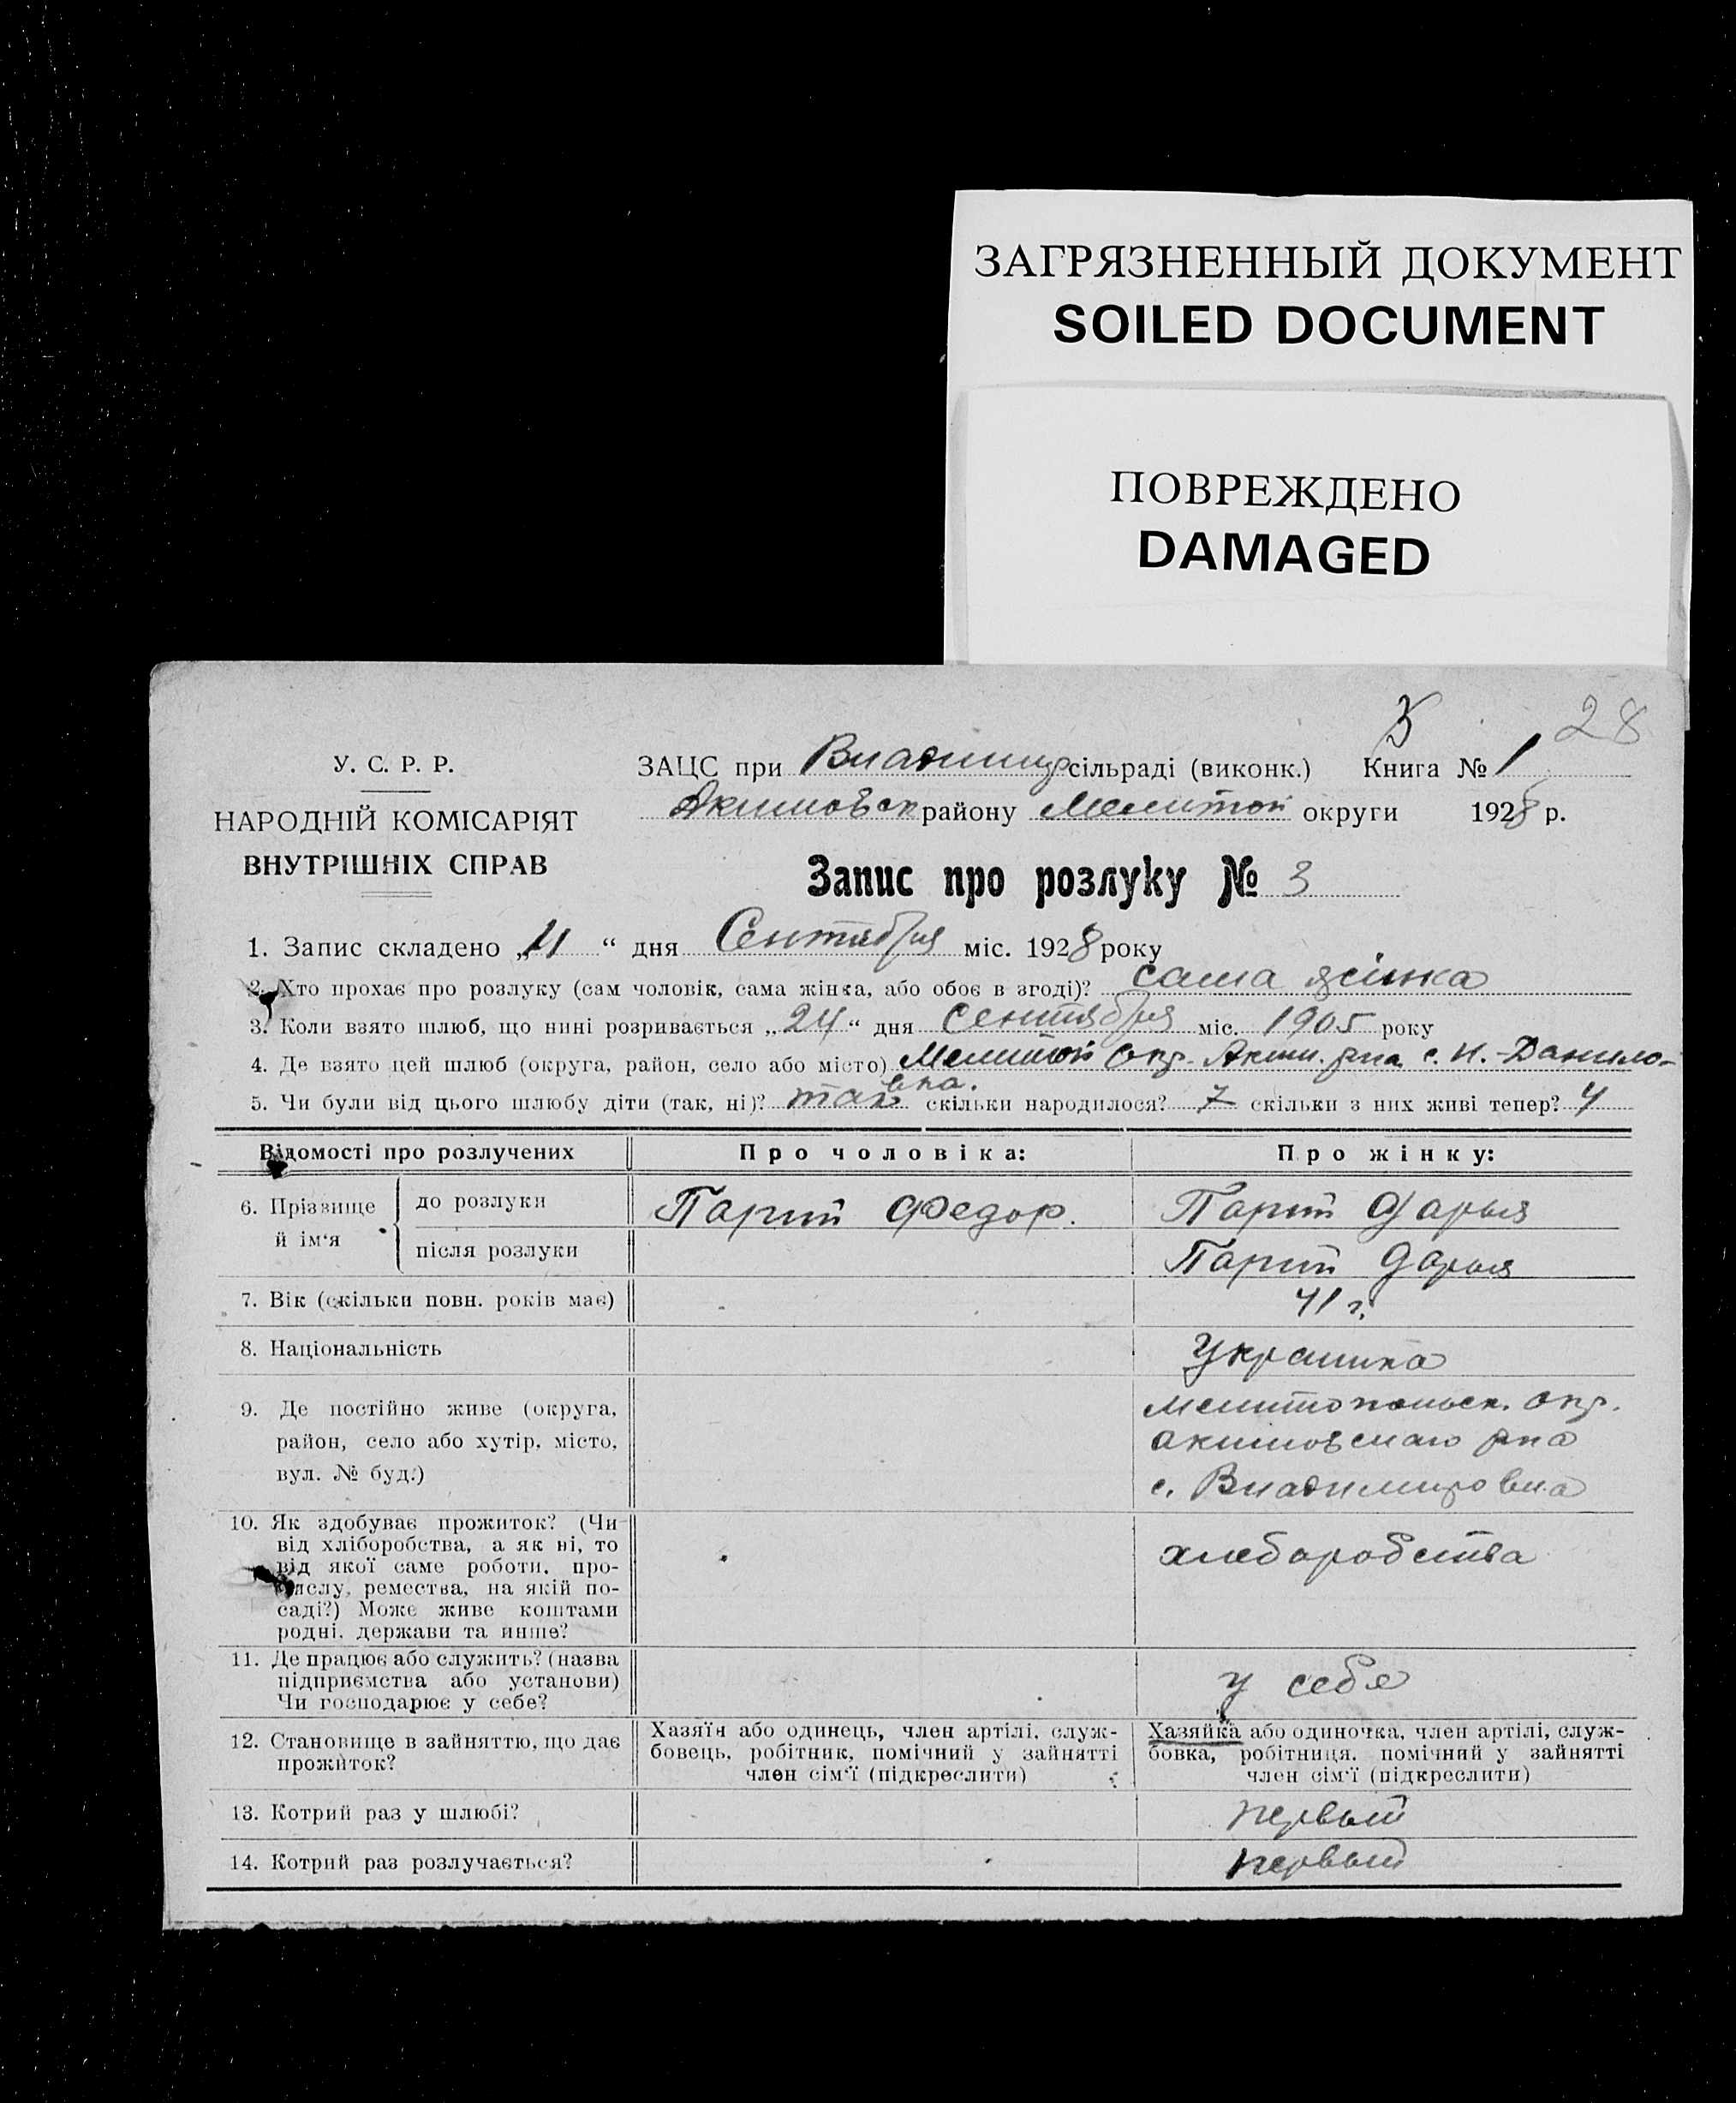 ЗАГРЯЗНЕННЫЙ ДОКУМЕНТ
SOILED DOCUMENT
ПОВРЕЖДЕНО
DAMAGED
28
У. С. Р. Р.
НАРОДНІЙ КОМІСАРІЯТ
ВНУТРІШНІХ СПРАВ
ЗАЦС при Владимир сільраді (виконк.) Книга № 1
Акимовск району Мелитоп округи 1928 р.
Запис про розлуку № 3
1. Запис складено „11“ дня Сентября міс. 1928 року
2. Хто прохає про розлуку (сам чоловік, сама жінка, або обоє в згоді)? сама жінка
3. Коли взято шлюб, що нині розривається „24“ дня Сентября міс. 1905 року
4. Де взято цей шлюб (округа, район, село або місто) Мелитоп Окр. Аким. рна с. Н.-Данило-
вка.
5. Чи були від цього шлюбу діти (так, ні)? так скільки народилося? 7 скільки з них живі тепер? 4
Відомості про розлучених Про чоловіка: Про жінку:
6. Прізвище й ім‘я до розлуки Парий Федор. Парий Дарья
після розлуки Парий Дарья
7. Вік (скільки повн. років має) 41 г.
8. Національність Украинка
9. Де постійно живе (округа, Мелитопольск. окр.
район, село або хутір, місто, Акимовскаго рна
вул. № буд.) с. Владимировка
10. Як здобуває прожиток? (Чи
від хліборобства, а як ні, то хлеборобства
від якої саме роботи, про-
мислу, ремества, на якій по-
саді?) Може живе коштами
родні, держави та инше?
11. Де працює або служить? (назва
підприємства або установи) у себе
Чи господарює у себе?
12. Становище в зайняттю, що дає прожиток?
Хазяїн або одинець, член артілі, служ-
бовець, робітник, помічний у зайнятті
член сім‘ї (підкреслити)
Хазяйка або одиночка, член артілі, служ-
бовка, робітниця, помічний у зайнятті
член сім‘ї (підкреслити)
13. Котрий раз у шлюбі? первый
14. Котрий раз розлучається? первый